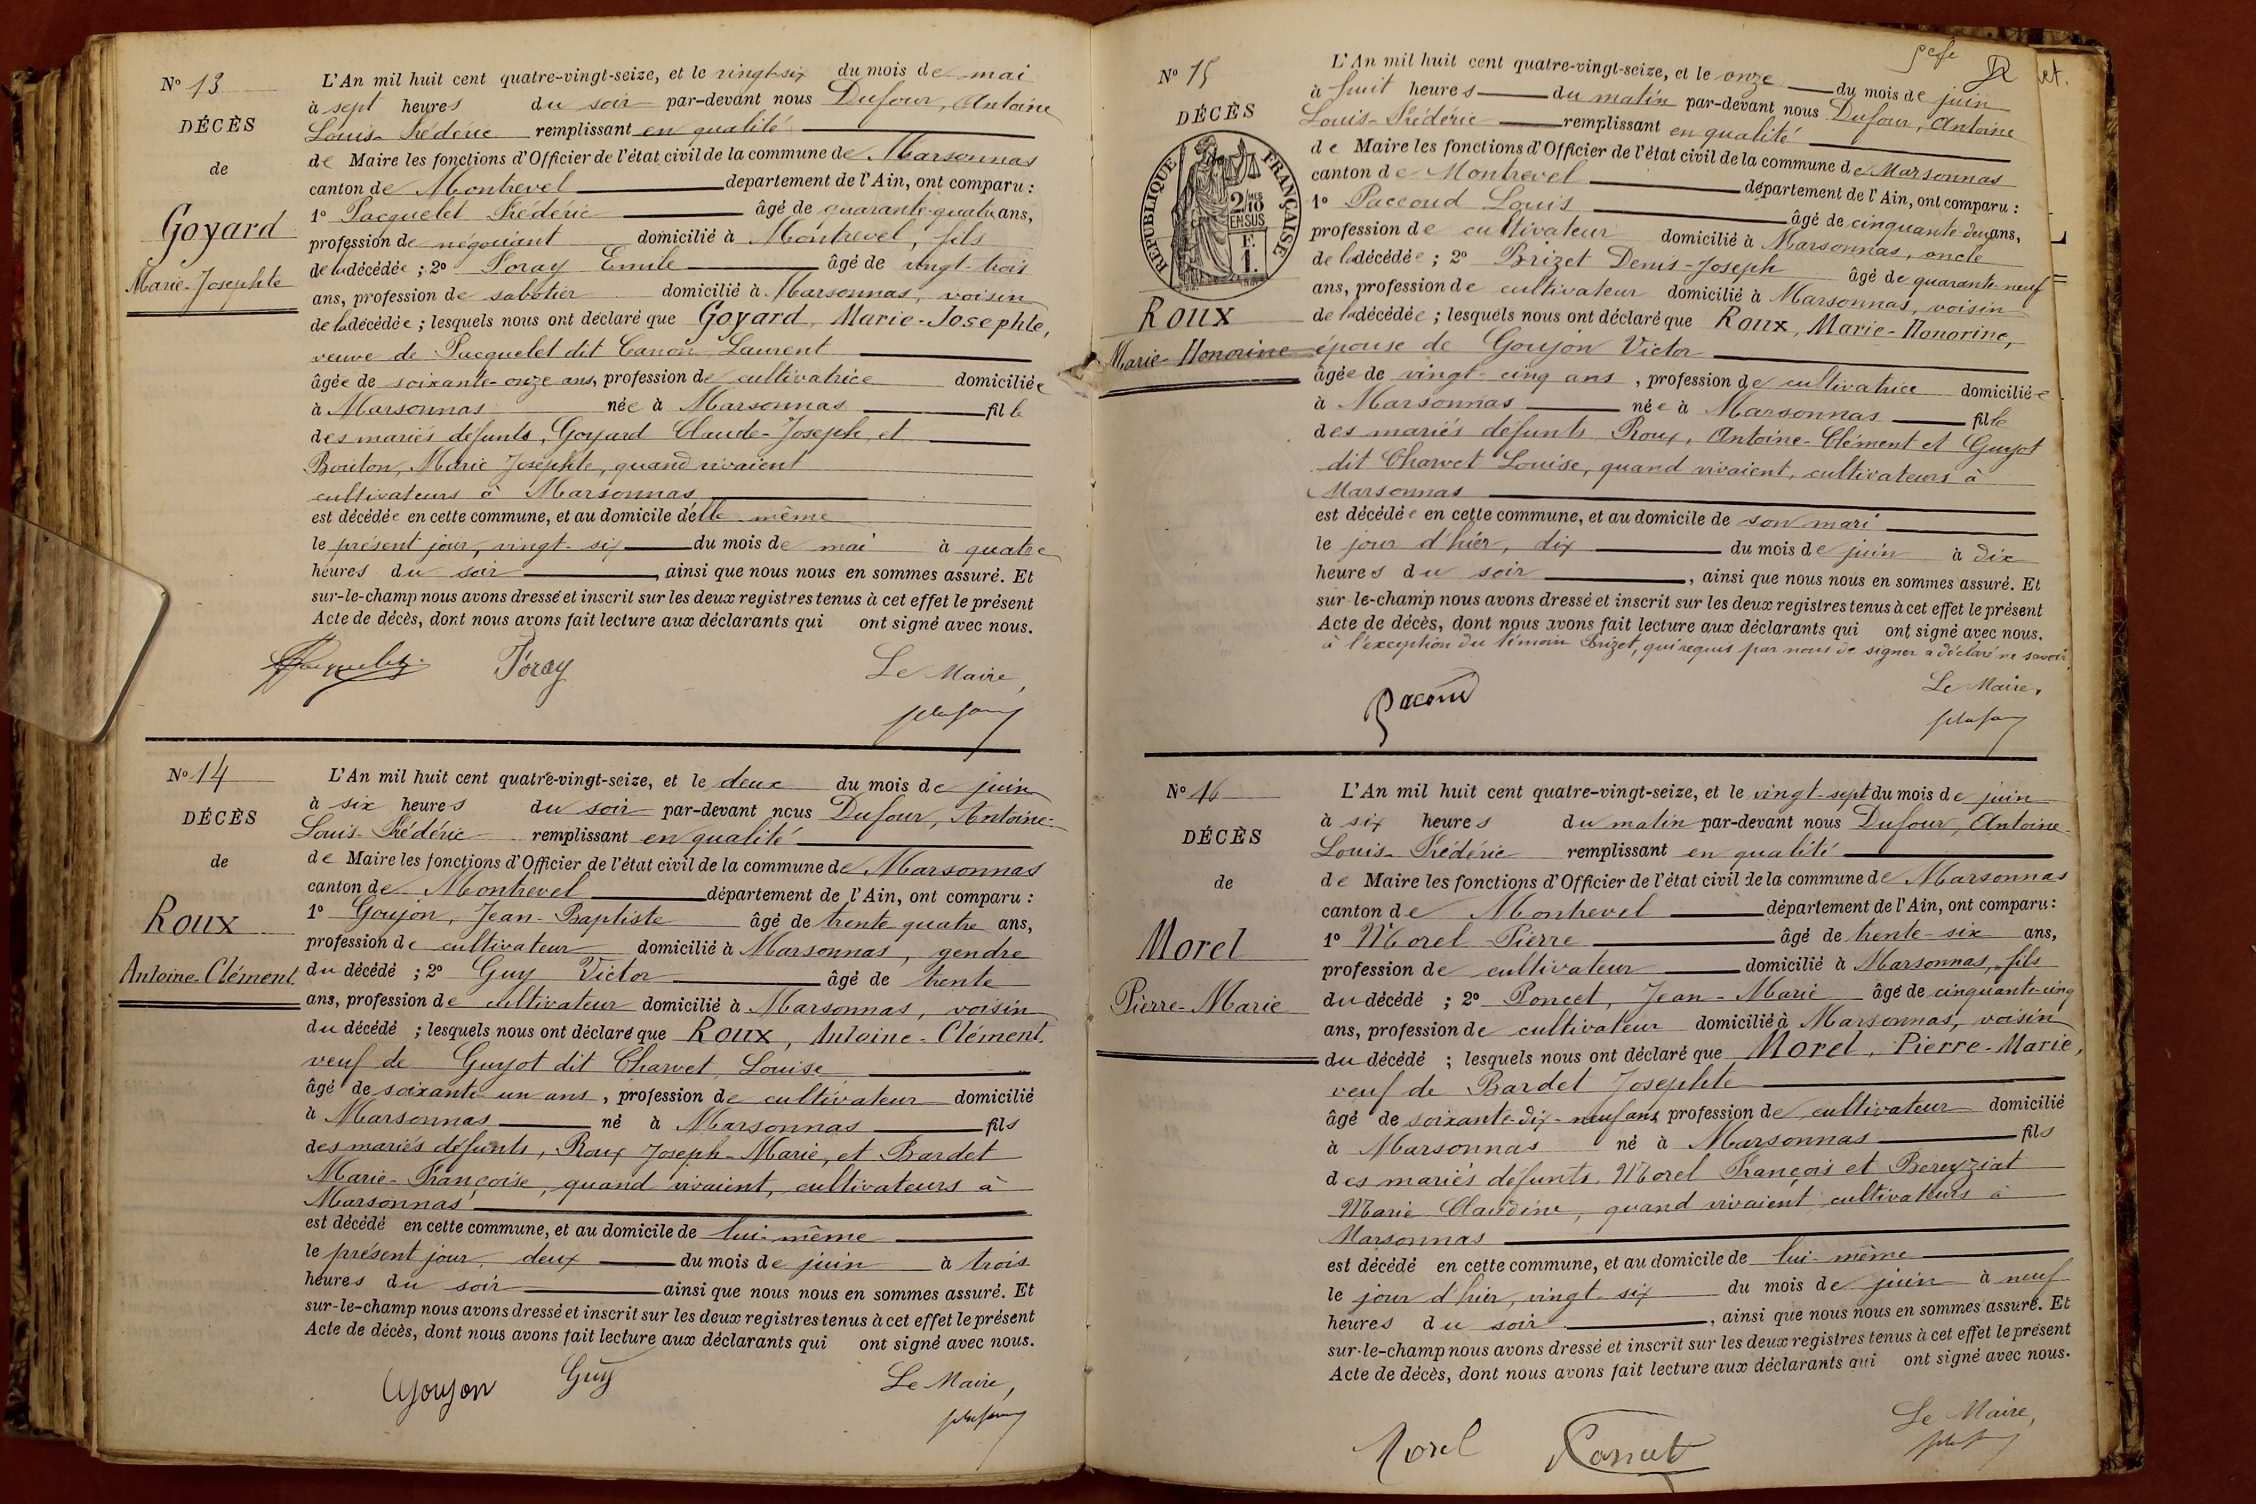 N° 13
DÉCÈS
de
Goyard
Marie-Josephte
L'An mil huit cent quatre-vingt-seize, et le vingt-six du mois de mai
à sept heures du soir par-devant nous Dufour, Antoine
Louis-Frédéric remplissant en qualité
de Maire les fonctions d'Officier de l'état civil de la commune de Marsonnas
canton de Montrevel département de l'Ain, ont comparu :
1° Pacquelet Frédéric âgé de quarante-quatre ans,
profession de négociant domicilié à Montrevel, fils
de la décédée ; 2° Foray Emile âgé de vingt-trois
ans, profession de sabotier domicilié à Marsonnas, voisin
de la décédée ; lesquels nous ont déclaré que Goyard, Marie-Josephte,
veuve de Pacquelet dit Canon Laurent
âgée de soixante-onze ans, profession de cultivatrice domiciliée
à Marsonnas née à Marsonnas fille
des mariés défunts, Goyard Claude-Joseph et
Bouton, Marie Josephte, quand vivaient
cultivateurs à Marsonnas
est décédée en cette commune, et au domicile d'elle même
le présent jour, vingt-six du mois de mai à quatre
heures du soir, ainsi que nous nous en sommes assuré. Et
sur-le-champ nous avons dressé et inscrit sur les deux registres tenus à cet effet le présent
Acte de décès, dont nous avons fait lecture aux déclarants qui ont signé avec nous.
Pacquelet Foray Le Maire,
Dufour
N° 14
DÉCÈS
de
Roux
Antoine-Clément
L'An mil huit cent quatre-vingt-seize, et le deux du mois de juin
à six heures du soir par-devant nous Dufour, Antoine-
Louis-Frédéric remplissant en qualité
de Maire les fonctions d'Officier de l'état civil de la commune de Marsonnas
canton de Montrevel département de l'Ain, ont comparu :
1° Goujon, Jean-Baptiste âgé de trente quatre ans,
profession de cultivateur domicilié à Marsonnas, gendre
du décédé ; 2° Guy Victor âgé de trente
ans, profession de cultivateur domicilié à Marsonnas, voisin
du décédé ; lesquels nous ont déclaré que Roux, Antoine-Clément,
veuf de Guyot dit Charvet Louise
âgé de soixante un ans, profession de cultivateur domicilié
à Marsonnas né à Marsonnas fils
des mariés défunts, Roux Joseph-Marie, et Bardet
Marie-Françoise, quand vivaient, cultivateurs à
Marsonnas
est décédé en cette commune, et au domicile de lui-même
le présent jour, deux du mois de juin à trois
heures du soir ainsi que nous nous en sommes assuré. Et
sur-le-champ nous avons dressé et inscrit sur les deux registres tenus à cet effet le présent
Acte de décès, dont nous avons fait lecture aux déclarants qui ont signé avec nous.
Goujon Guy Le Maire,
Dufour
et.
N° 15
DÉCÈS
RÉPUBLIQUE FRANÇAISE
2/10 EN SUS
F. 1.
Roux
Marie-Honorine
L'An mil huit cent quatre-vingt-seize, et le onze du mois de juin
à huit heures du matin par-devant nous Dufour, Antoine
Louis-Frédéric remplissant en qualité
de Maire les fonctions d'Officier de l'état civil de la commune de Marsonnas
canton de Montrevel département de l'Ain, ont comparu :
1° Paccoud Louis âgé de cinquante-deux ans,
profession de cultivateur domicilié à Marsonnas, oncle
de la décédée ; 2° Brizet Denis-Joseph âgé de quarante-neuf
ans, profession de cultivateur domicilié à Marsonnas, voisin
de la décédée ; lesquels nous ont déclaré que Roux, Marie-Honorine,
épouse de Goujon Victor
âgée de vingt-cinq ans, profession de cultivatrice domiciliée
à Marsonnas née à Marsonnas fille
des mariés défunts Roux, Antoine-Clément et Guyot
dit Charvet Louise, quand vivaient, cultivateurs à
Marsonnas
est décédée en cette commune, et au domicile de son mari
le jour d'hier, dix du mois de juin à dix
heures du soir, ainsi que nous nous en sommes assuré. Et
sur-le-champ nous avons dressé et inscrit sur les deux registres tenus à cet effet le présent
Acte de décès, dont nous avons fait lecture aux déclarants qui ont signé avec nous.
à l'exception du témoin Brizet, qui requis par nous de signer a déclaré ne savoir.
Le Maire,
Pacoud Dufour
N° 16
DÉCÈS
de
Morel
Pierre-Marie
L'An mil huit cent quatre-vingt-seize, et le vingt-sept du mois de juin
à six heures du matin par-devant nous Dufour, Antoine-
Louis-Frédéric remplissant en qualité
de Maire les fonctions d'Officier de l'état civil de la commune de Marsonnas
canton de Montrevel département de l'Ain, ont comparu :
1° Morel Pierre âgé de trente-six ans,
profession de cultivateur domicilié à Marsonnas, fils
du décédé ; 2° Poncet, Jean-Marie âgé de cinquante-cinq
ans, profession de cultivateur domicilié à Marsonnas, voisin
du décédé ; lesquels nous ont déclaré que Morel, Pierre-Marie,
veuf de Bardet Josephte
âgé de soixante-dix-neuf ans, profession de cultivateur domicilié
à Marsonnas né à Marsonnas fils
des mariés défunts, Morel François et Bereyziat
Marie Claudine, quand vivaient cultivateurs à
Marsonnas
est décédé en cette commune, et au domicile de lui-même
le jour d'hier, vingt-six du mois de juin à neuf
heures du soir, ainsi que nous nous en sommes assuré. Et
sur-le-champ nous avons dressé et inscrit sur les deux registres tenus à cet effet le présent
Acte de décès, dont nous avons fait lecture aux déclarants qui ont signé avec nous.
Le Maire,
Morel Poncet Dufour